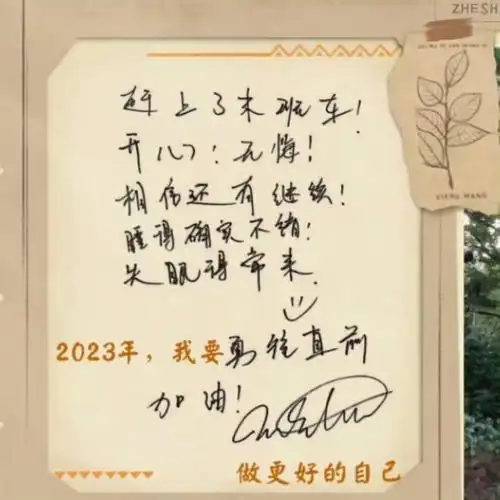 ZHESH
赶上了末班车!
开心!无悔!
相信还有继续!
睡得确实不错!
失眠得常来.
2023年，我要勇往直前
加油!
做更好的自己
XIANG WANG